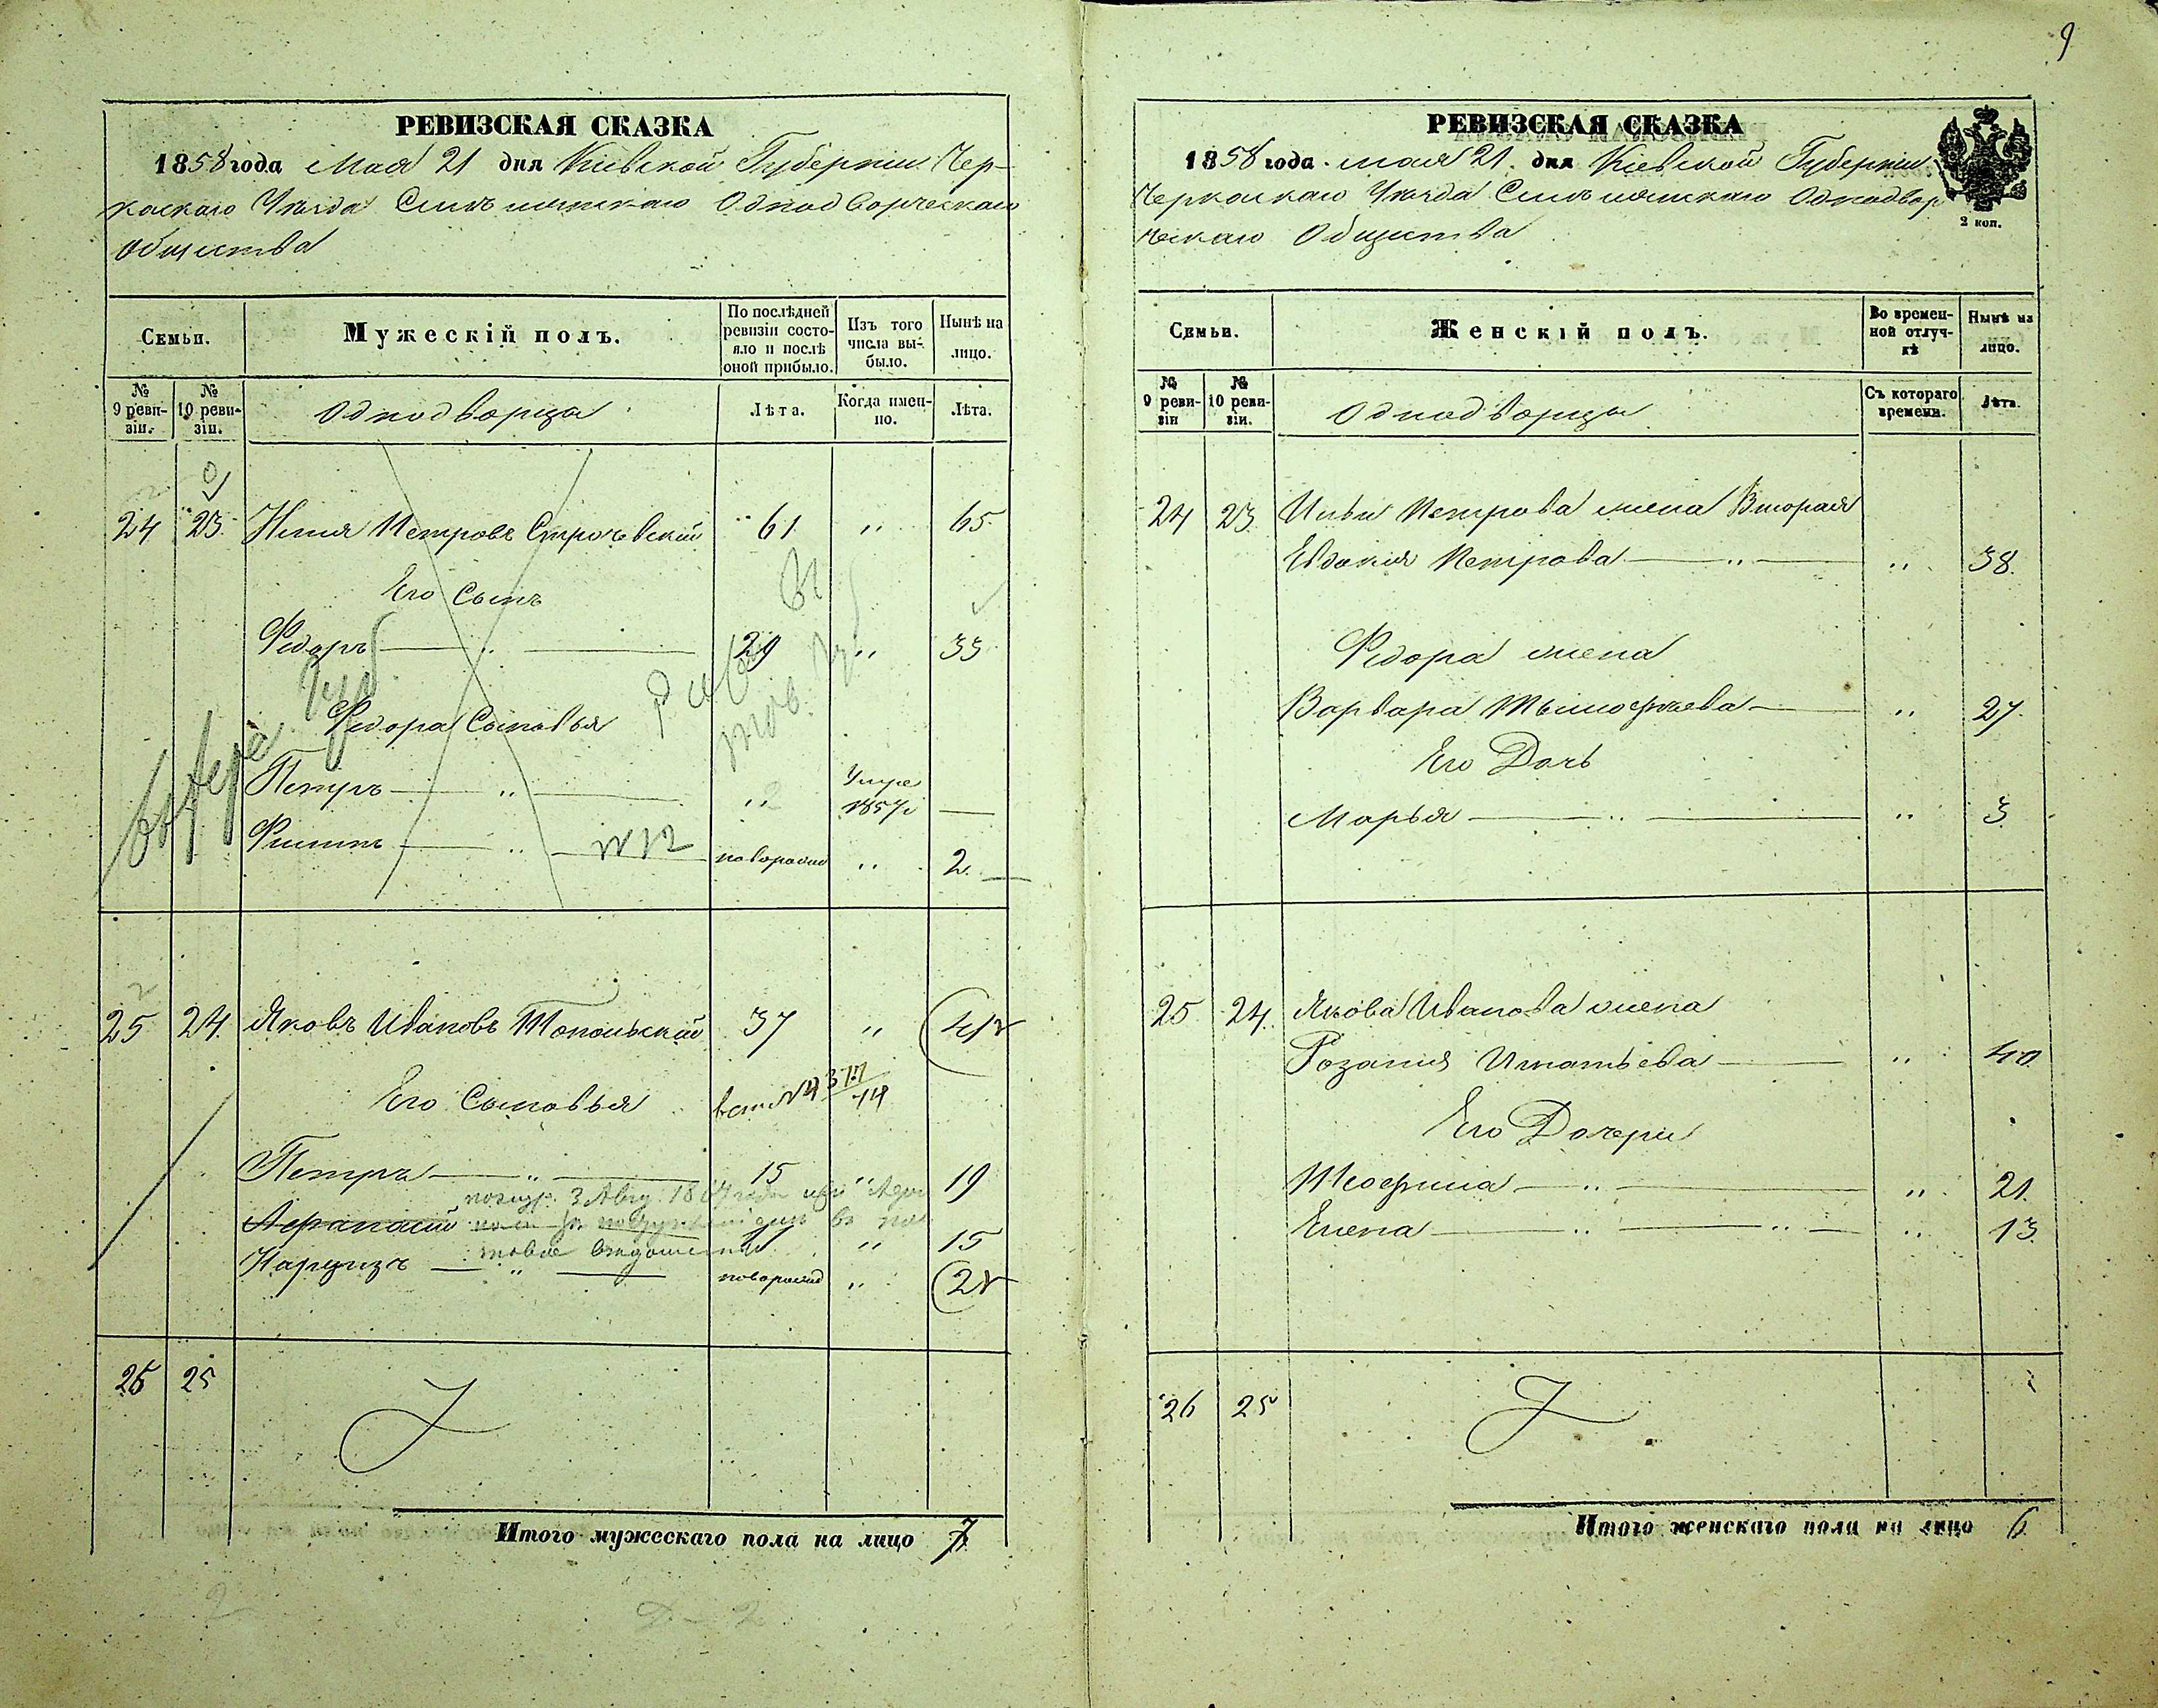 9
РЕВИЗСКАЯ СКАЗКА
1858 года Мая 21 дня Кіевской Губерніи Чер-
каскаго Уѣзда Однодворческаго
Общества
Семьи.
Мужескій полъ.
По послѣдней ревизіи состо-яло и послѣ оной прибыло.
Изъ того числа вы-было.
Нынѣ на лицо.
№ 9 реви-зіи.
№ 10 реви-зіи.
Однодворцы
Лѣта.
Когда имен-но.
Лѣта.
24 23 Илья Петровъ 61 " 65
Его Сынъ
Федоръ — " — 29 " 33
Федора Сыновья
Петръ — " — " Умре
1857 —
Филипъ — " — новорожд " 2
25 24 Яковъ Ивановъ Топольскій 37 " 41
Его Сыновья
Петръ — " — 15 " 19
Афанасій " 15
Нарцизъ — " — новорожд " 2
26 25
Итого мужескаго пола на лицо 7
РЕВИЗСКАЯ СКАЗКА
1858 года мая 21 дня Кіевской Губерніи
Черкаскаго Уѣзда Однодвор
ческаго Общества
2 коп.
Семьи.
Женскій полъ.
Во времен-ной отлуч-кѣ
Нынѣ на лицо.
№ 9 реви-зіи
№ 10 реви-зіи.
Однодворцы
Съ котораго времени.
Лѣта.
24 23 Ильи Петрова жена Вторая
Евдокія Петрова — " — " 38
Федора жена
Варвара Тымофѣева — " 27
Его Дочь
Марья — " — " 3
25 24 Якова Иванова жена
Розалія Игнатьева — " 40
Его Дочери
Теофила — " — " 21
Елена — " — " — " 13
26 25
Итого женскаго пола на лицо 6